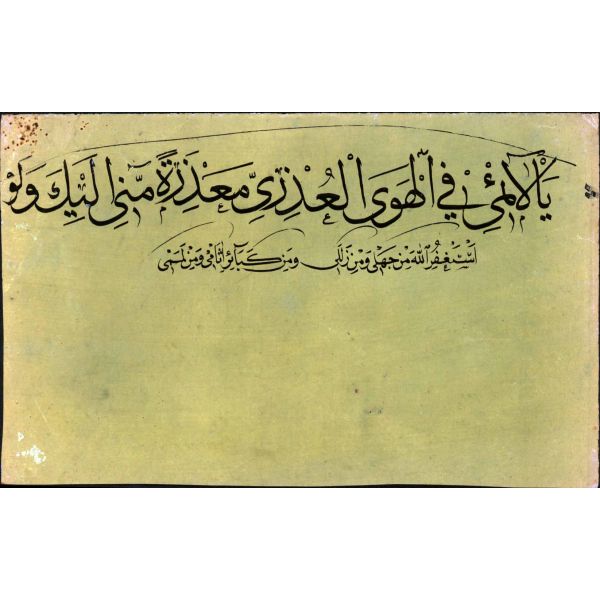 يَا لَائِمِي فِي الْهَوَى الْعُذْرِيِّ مَعْذِرَةً مِنِّي إِلَيْكَ وَلَوْ
اَسْتَغْفِرُ اللهَ مِنْ جَهْلِي وَمِنْ زَلَلِي وَمِنْ كَبَائِرِ آثَامِي وَمِنْ لَمَمِي